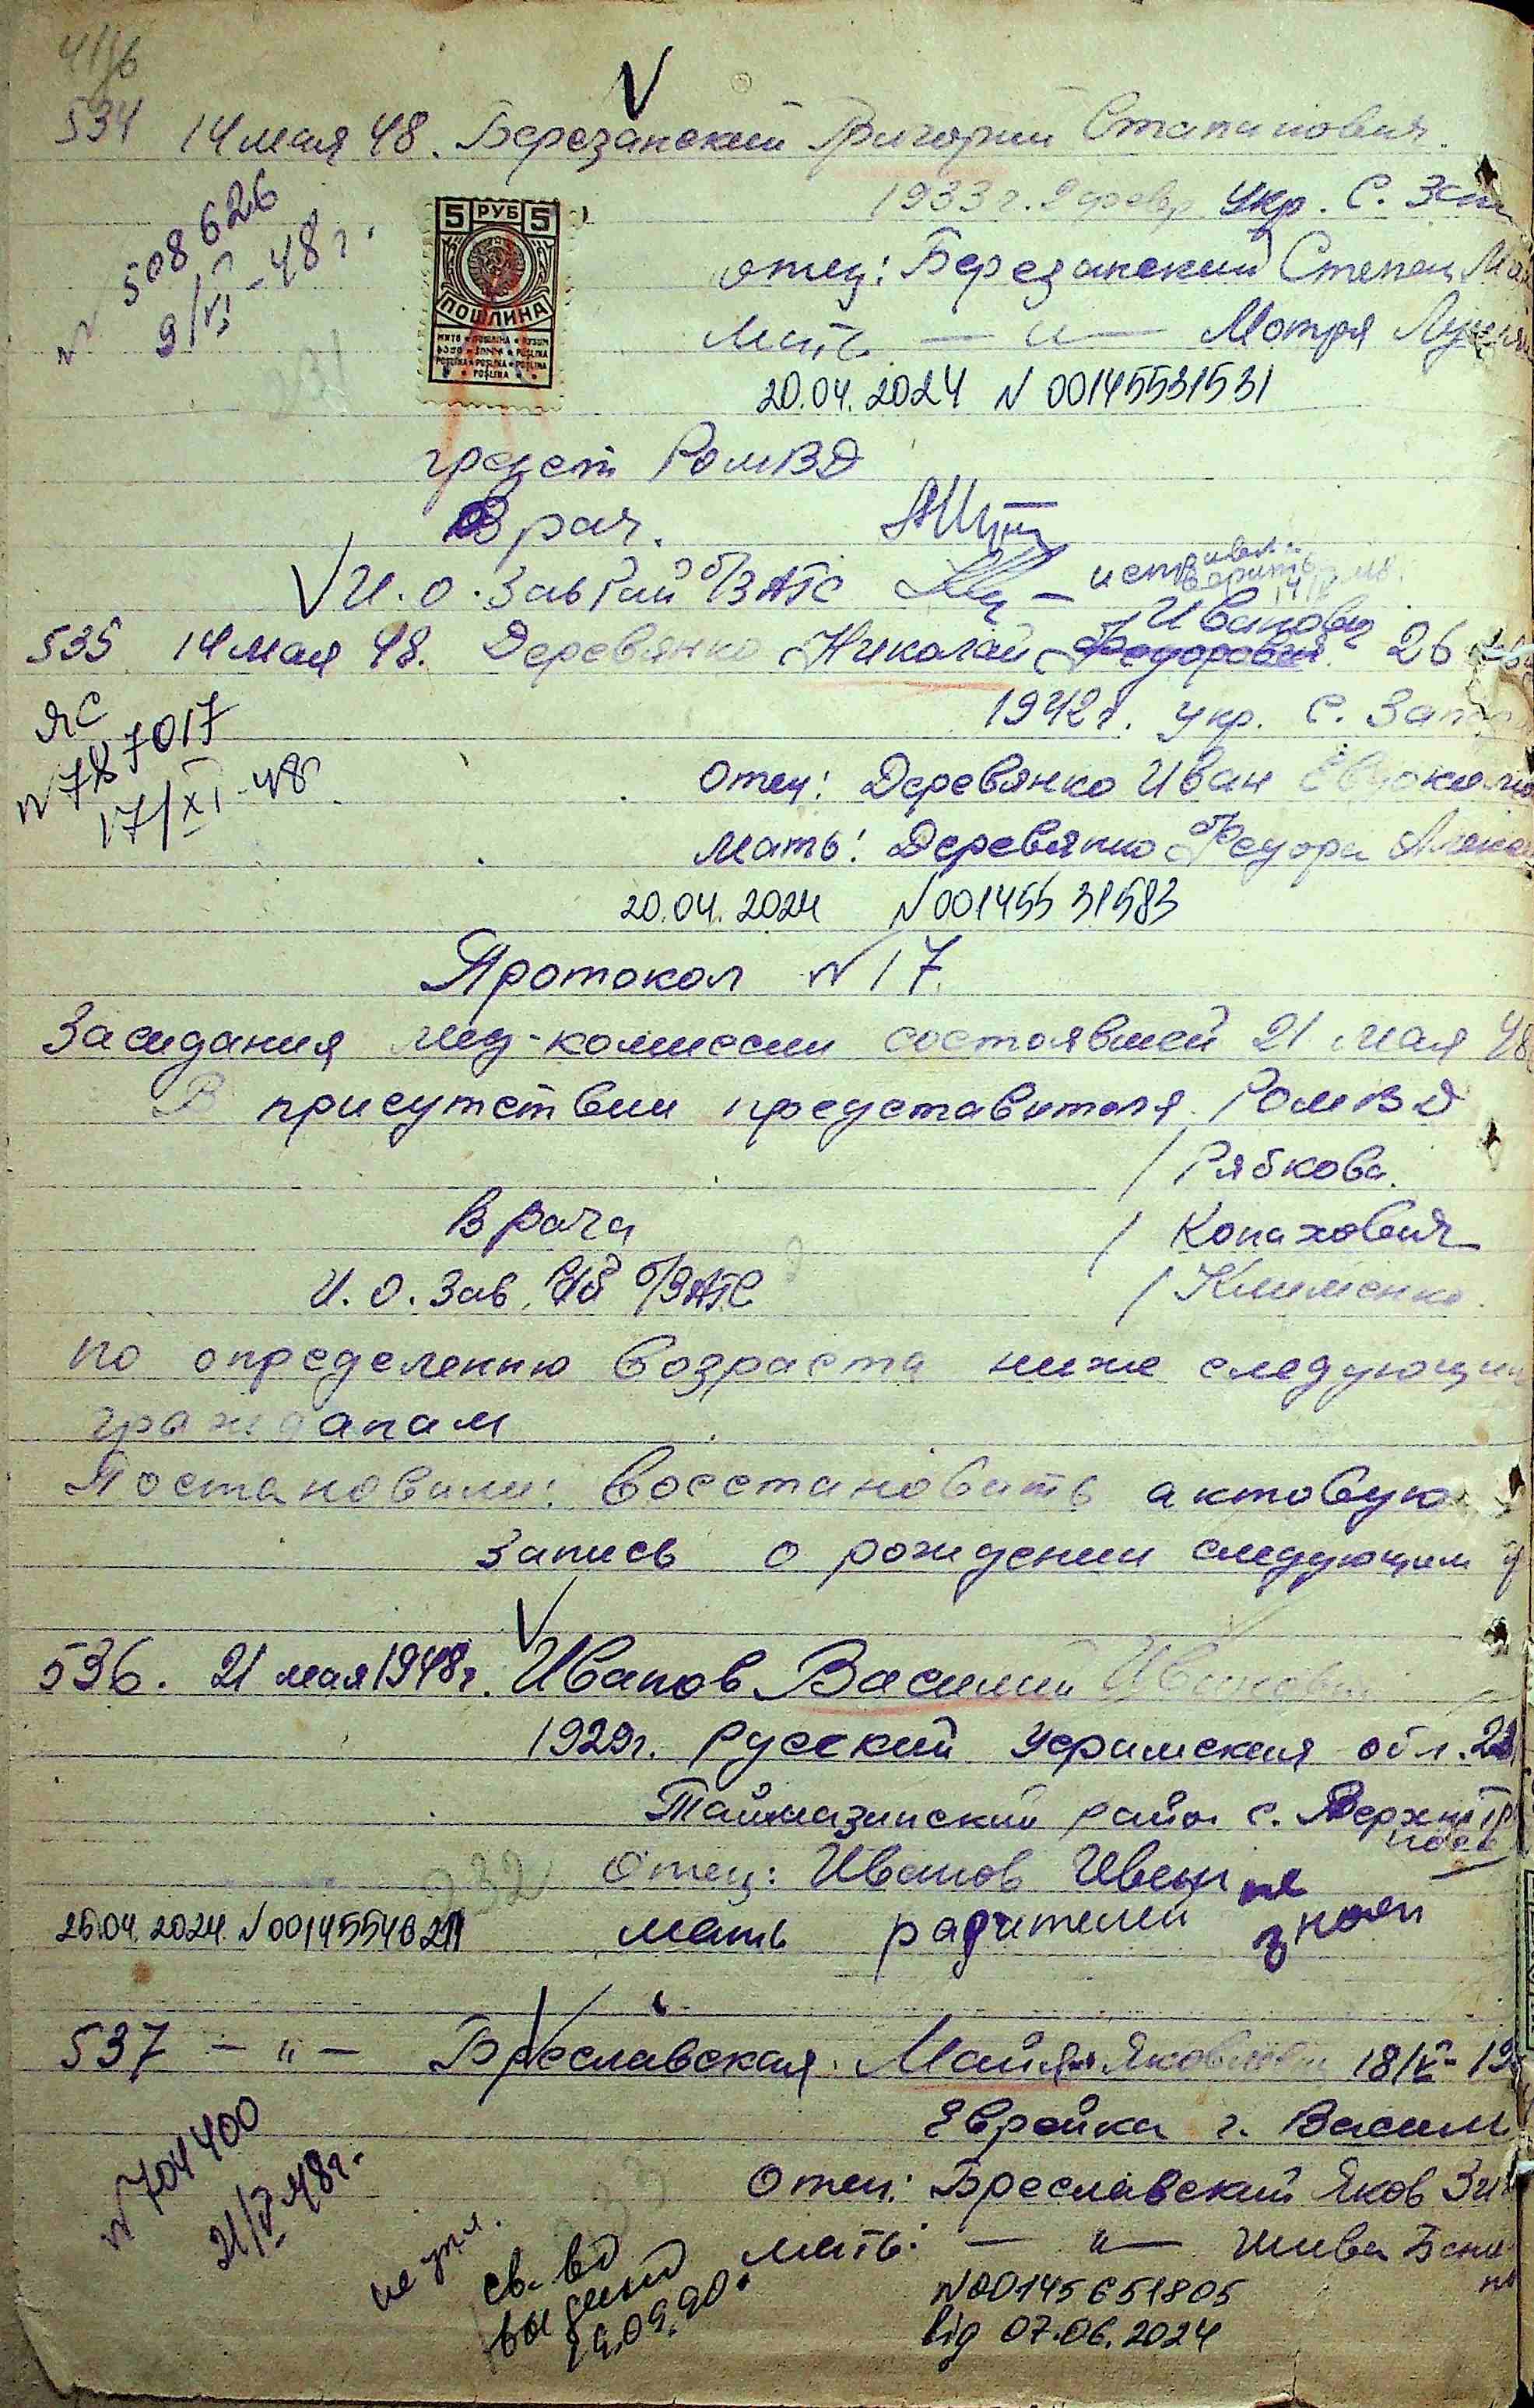 534 14 мая 48. Березанский Григорий Степанович
1933 г. 9 февр. укр. с.
N 508626
9/VI-48 г.
5 РУБ 5
ПОШЛИНА
отец: Березанский Степан
Мать — " — Мотря
20.04.2024 N 00145531531
предст РОМВД
Врач.
И.О. Зав Рай б/ЗАГС
Иванович
535 14 мая 48. Деревянко Николай Федорович 26
1942 г. укр. с.
ЯС
N 787017
17/XI-48
Отец: Деревянко Иван
Мать: Деревянко Федора
20.04.2024 N 00145531583
Протокол N 17.
Заседания мед-комиссии состоявшей 21 мая 48
В присутствии представителя РОМВД
/ Рябкова.
Врача / Копахович
И.О. Зав. б/ЗАГС / Клименко.
по определению возраста ниже следующим
гражданам
Постановили: восстановить актовую
запись о рождении следующим
536. 21 мая 1948 г. Иванов Василий Иванович
1929 г. Русский Уфимская обл.
Таймазинский район с.
Отец: Иванов Иван не
25.04.2024 мать родителей знает
537 — " — Бреславская Майя Яковлевна 18/V-19
Еврейка г. Васил
N 704400
21/V 48 г.
Отец: Бреславский Яков
мать: — " —
св-во
выдано
N 00145651805
від 07.06.2024